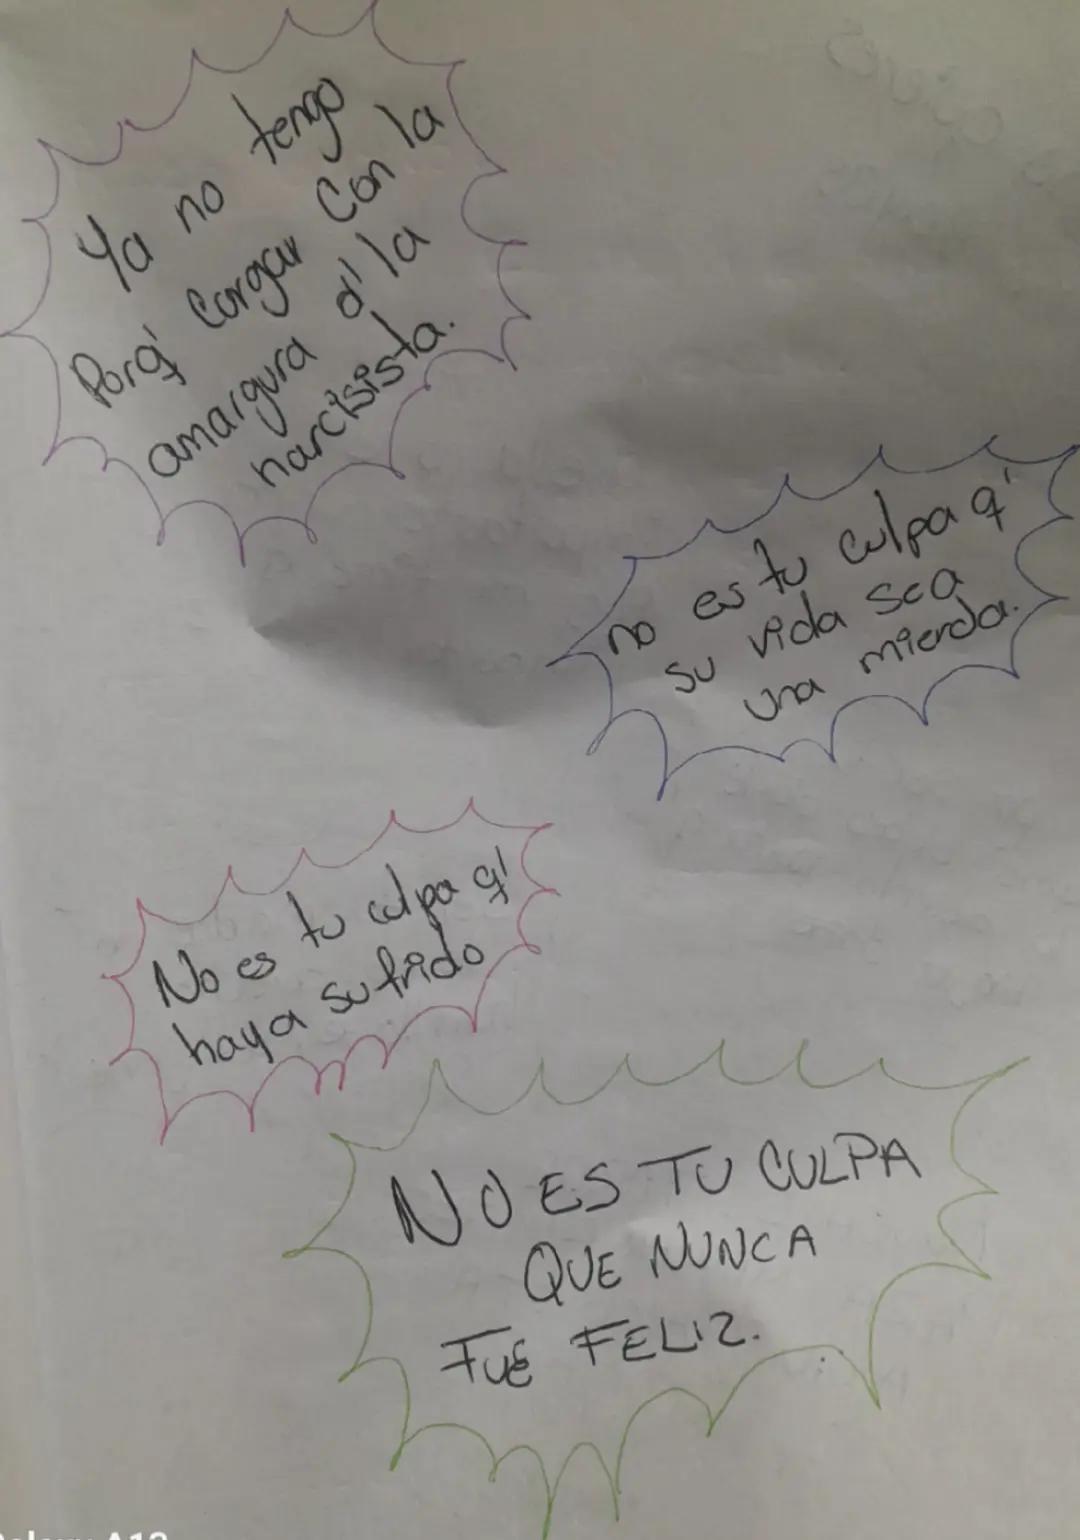 Ya no tengo
Porq' cargar con la
amargura d' la
narcisista.
no es tu culpa q'
su vida sea
una mierda.
No es tu culpa q'
haya sufrido
NO ES TU CULPA
QUE NUNCA
FUE FELIZ.